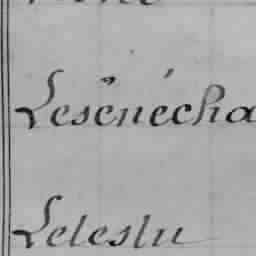 Lesénécha
Lelestu